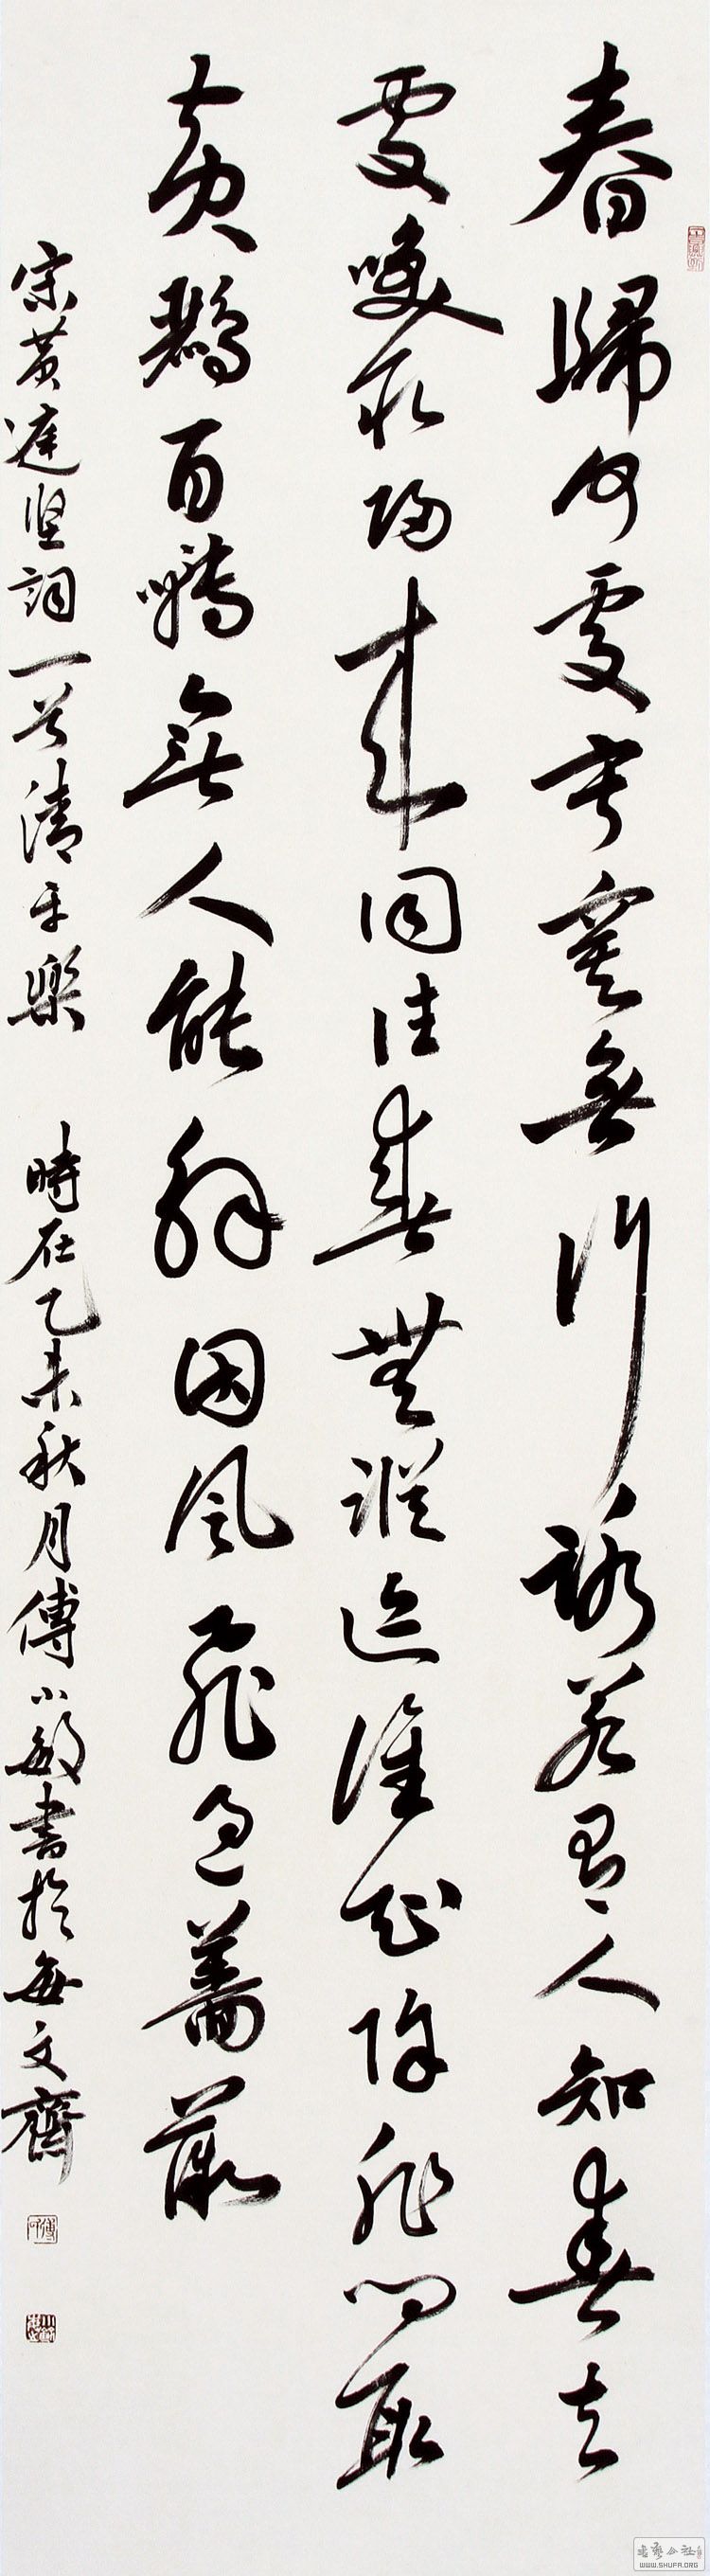 春歸何處寂寞無行路若有人知春去
處喚取歸來同住春無蹤迹誰知除非問取
黄鸝百囀無人能解因風飛過薔薇
宋黄庭坚詞一首清平樂 時在乙未秋月傅小敏書於每文齋
书艺公社
WWW.SHUFA.ORG